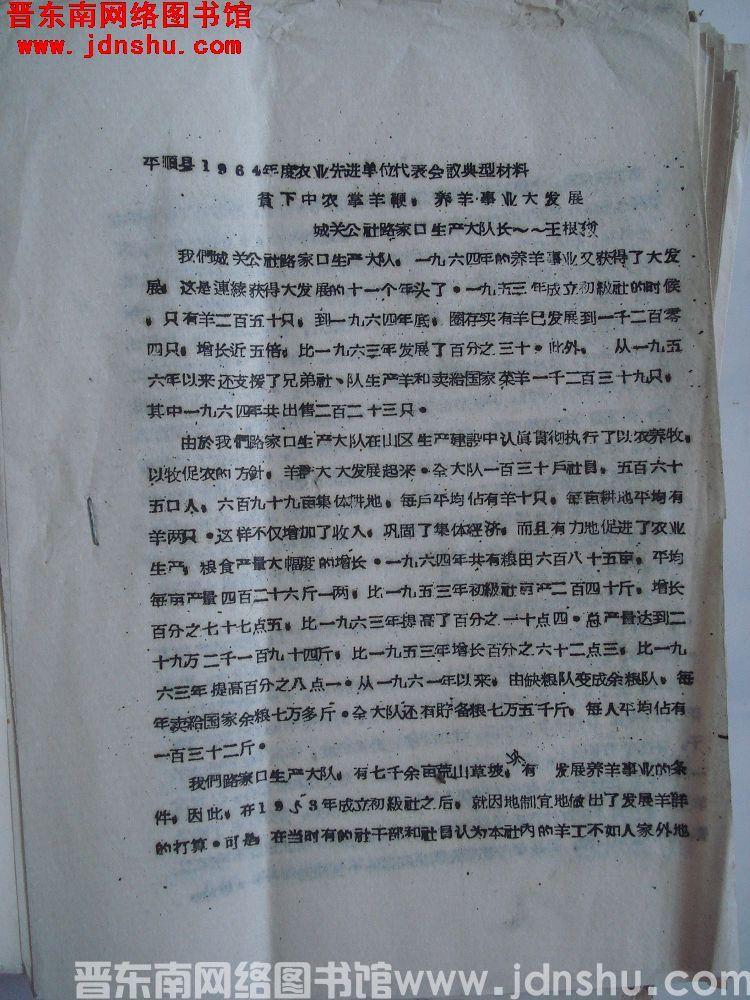 晋东南网络图书馆
www.jdnshu.com
平顺县1964年度农业先进单位代表会议典型材料
贫下中农掌羊鞭，养羊事业大发展
城关公社路家口生产大队长～～王根
我們城关公社路家口生产大队，一九六四年的养羊事业又获得了大发
展，这是連續获得大发展的十一个年头了。一九五三年成立初級社的时候
，只有羊二百五十只，到一九六四年底，圈存实有羊已发展到一千二百零
四只，增长近五倍，比一九六三年发展了百分之三十。此外， 从一九五
六年以来还支援了兄弟社、队生产羊和卖給国家菜羊一千二百三十九只，
其中一九六四年共出售二百二十三只。
由於我們路家口生产大队在山区生产建設中认眞贯彻执行了以农养牧，
以牧促农的方針，羊群大大发展起来。全大队一百三十戶社員，五百六十
五口人，六百九十九亩集体耕地，每戶平均佔有羊十只，每亩耕地平均有
羊两只。这样不仅增加了收入，巩固了集体经济，而且有力地促进了农业
生产，粮食产量大幅度的增长。一九六四年共有粮田六百八十五亩，平均
每亩产量四百二十六斤一两，比一九五三年初級社亩产二百四十斤，增长
百分之七十七点五，比一九六三年提高了百分之一十点四。总产量达到二
十九万二千一百九十四斤，比一九五三年增长百分之六十二点三，比一九
六三年提高百分之八点一。从一九六一年以来，由缺粮队变成余粮队，每
年卖給国家余粮七万多斤。全大队还有貯备粮七万五千斤，每人平均佔有
一百三十二斤。
我們路家口生产大队，有七千余亩荒山草坡，具有 发展养羊事业的条
件，因此，在1953年成立初級社之后，就因地制宜地做出了发展羊群
的打算。可是，在当时有的社干部和社員认为本社內的羊工不如人家外地
晋东南网络图书馆www.jdnshu.com